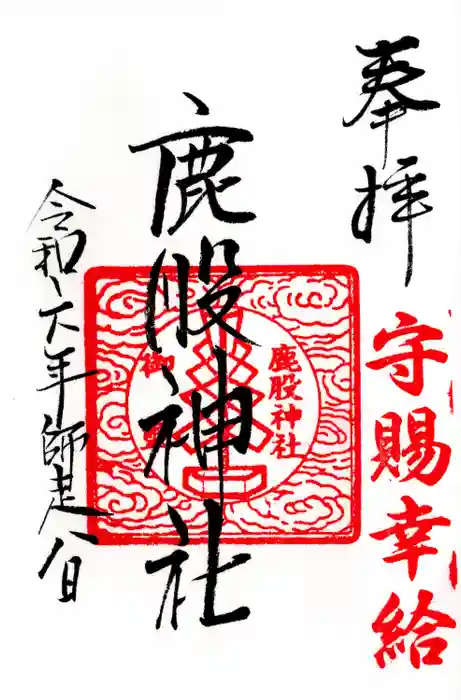 奉拝
守賜幸給
鹿股神社
鹿股神社
御
令和六年師走八日